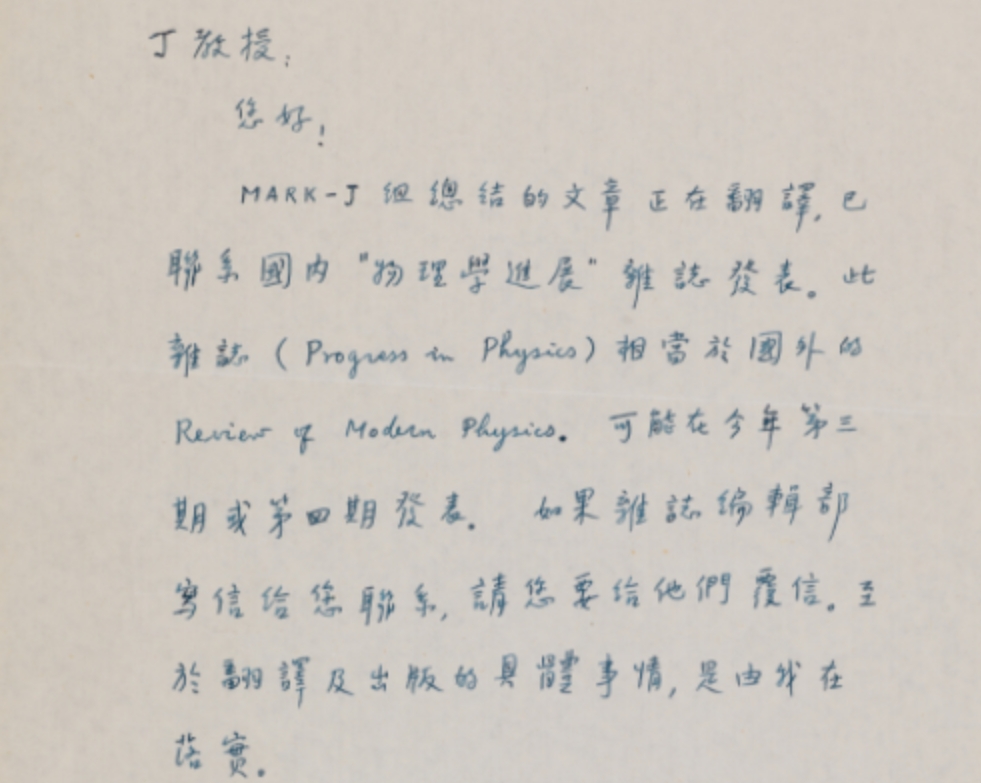 丁教授:
您好!
MARK-J 组總结的文章正在翻譯,已
聯系國内"物理學進展"雜誌發表。此
雜誌(Progress in Physics)相當於國外的
Review of Modern Physics. 可能在今年第三
期或第四期發表。 如果雜誌编輯部
寫信给您聯系,請您要给他們覆信。至
於翻譯及出版的具體事情,是由我在
落實。